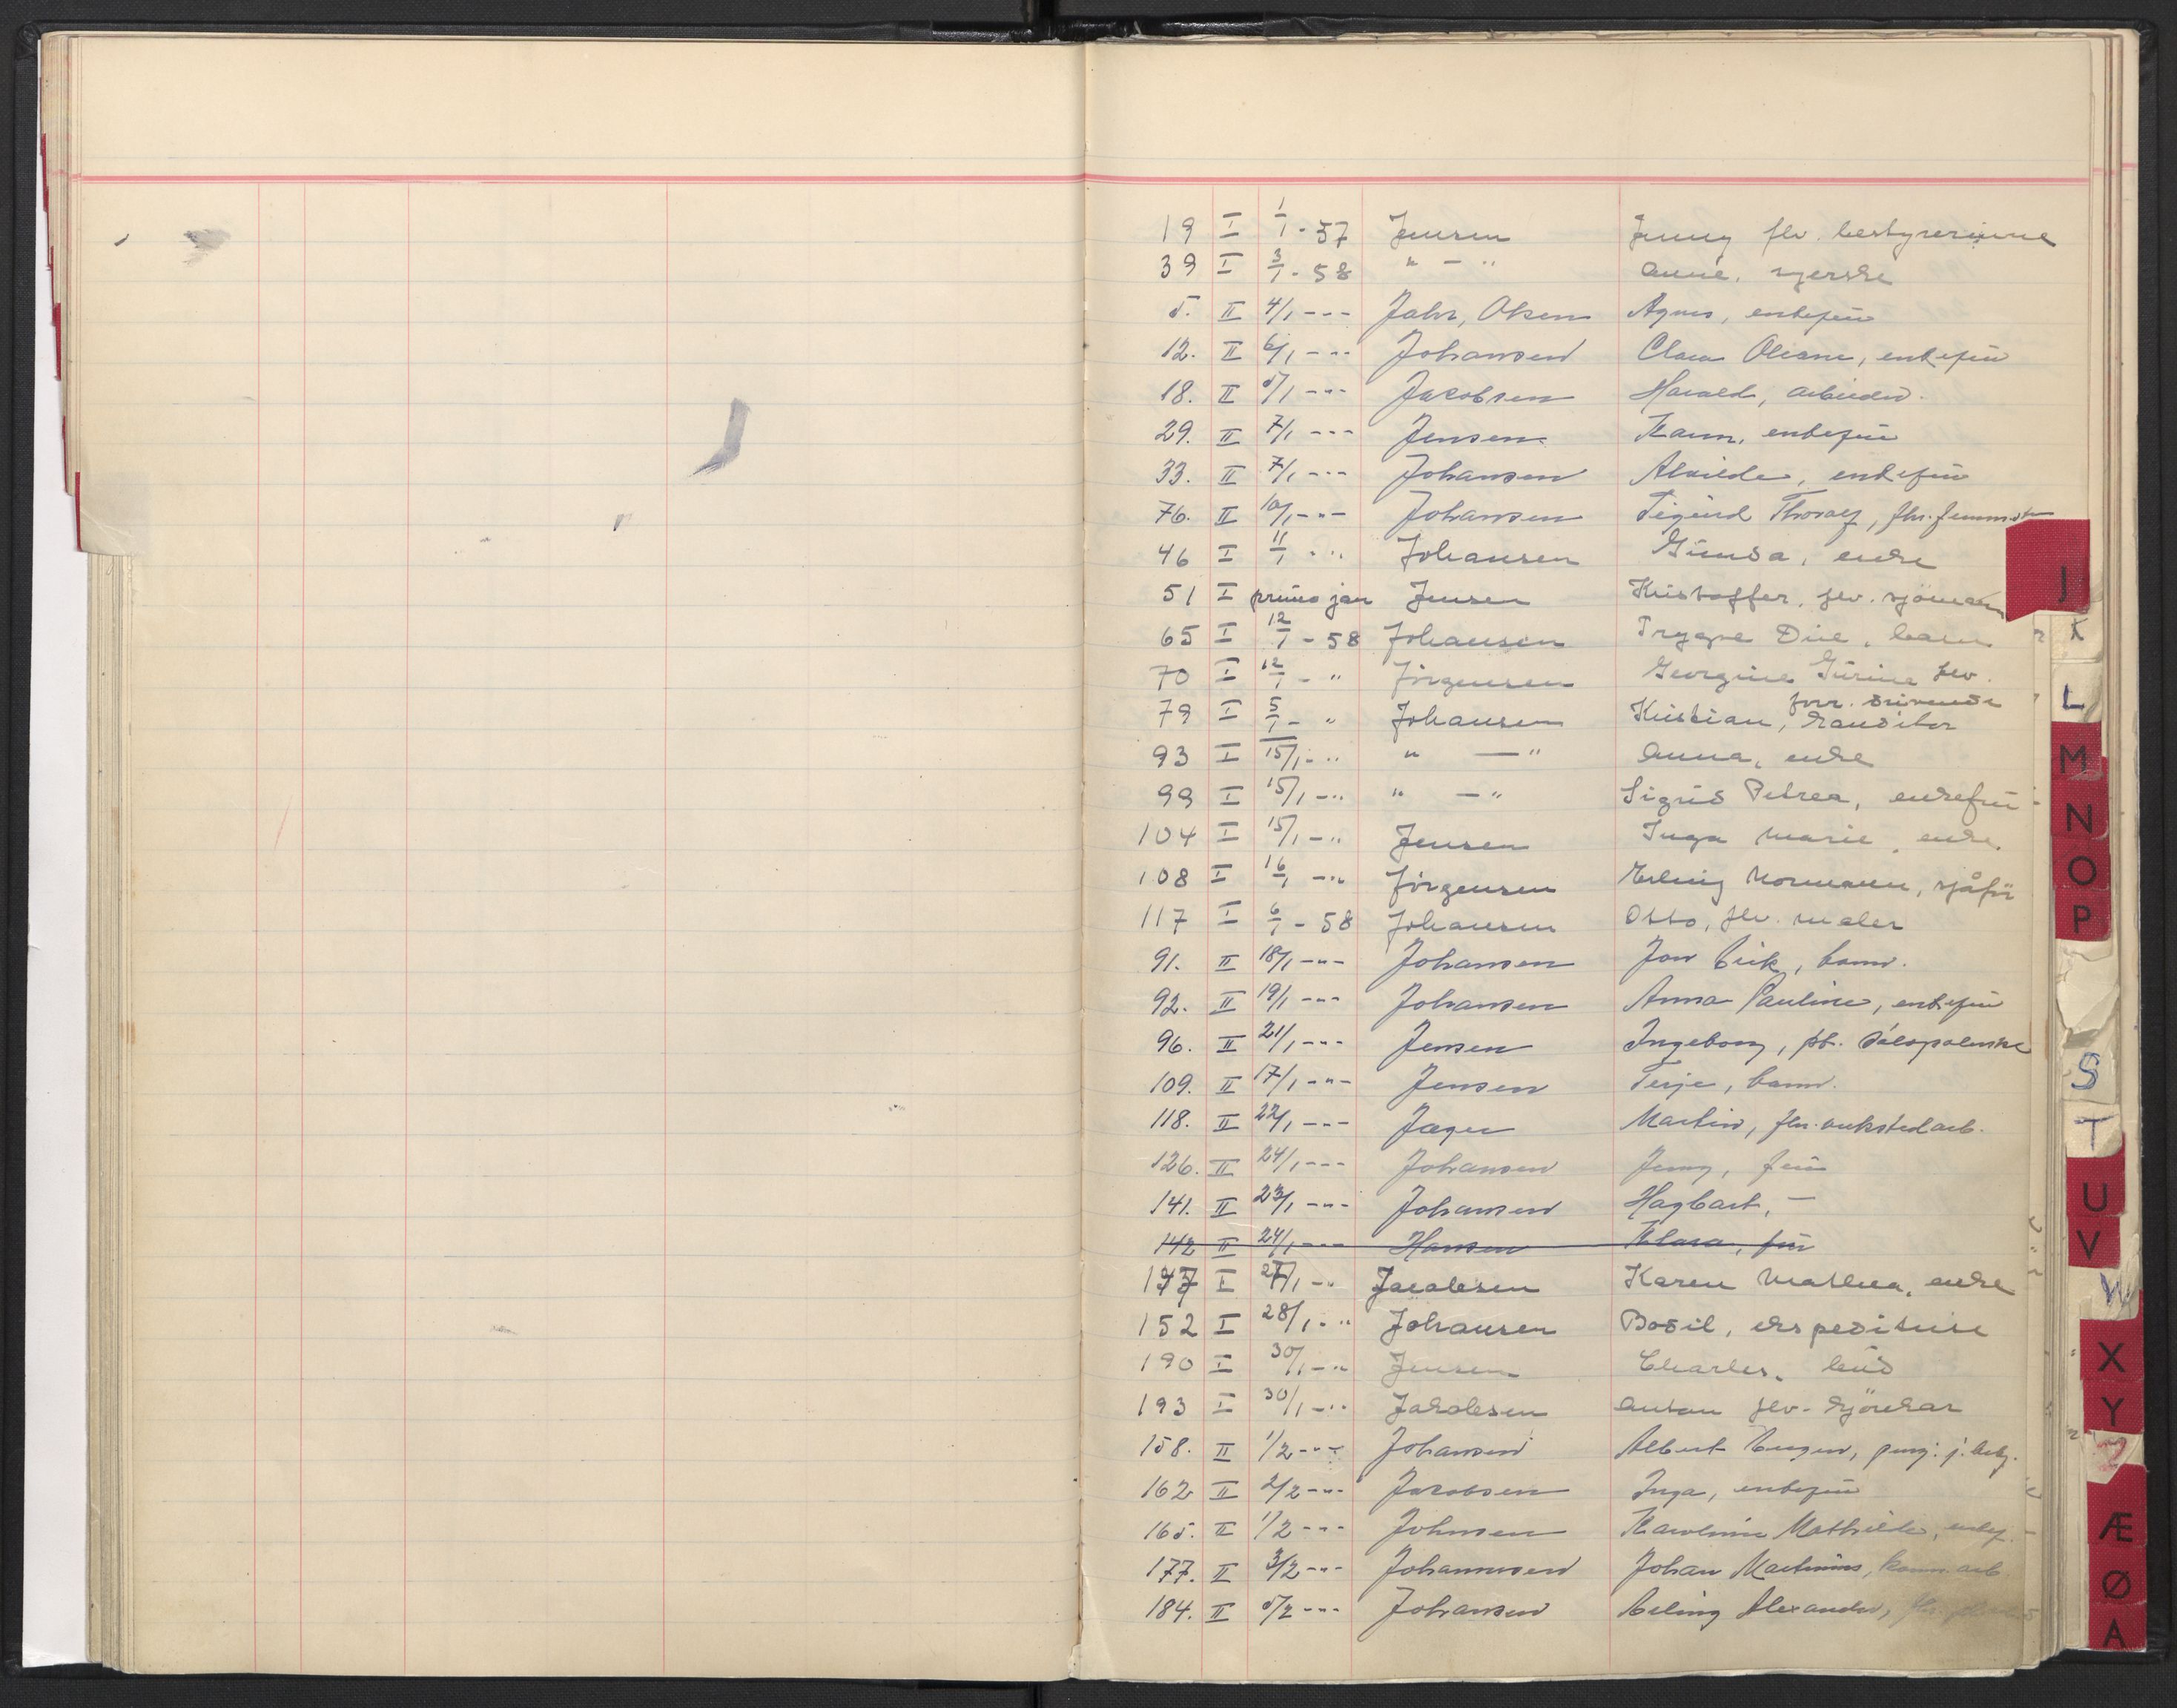 19 I 1/1 - 57 Jensen Jenny flv. bestyrerinne
39 I 3/1 - 58 " — " Anne, syerske
5. II 4/1 - - - Jahr, Olsen Agnes, enkefru
12. II 6/1 - - - Johansen Clara Oleane, enkefru
18. II 5/1 - - - Jacobsen Harald, arbeider.
29. II 7/1 - - - Jensen Karen, enkefru
33. II 7/1 - - - Johansen Alvilde, enkefru
76. II 10/1 - " - Johansen Sigurd Thoralf, fhv.
46 I 11/1 - " Johansen Gunda, enke
51 I primo jan Jensen Kristoffer, flv. sjömann
65 I 12/1 - 58 Johansen Trygve barn
70 I 12/1 - " Jörgensen Georgine flv.
79 I 5/1 - " Johansen Kristian, forr. drivende
93 I 15/1 - " " — " Anna, enke
99 I 15/1 - " " — " Sigrid Petrea, enkefru
104 I 15/1 - " Jensen Inga Marie, enke.
108 I 16/1 - " Jörgensen Erling Normann, sjåför
117 I 6/1 - 58 Johansen Otto, flv. maler
91. II 18/1 - " - Johansen Jon Erik, barn.
92. II 19/1 - " - Johansen Anna Pauline, enkefru
96. II 21/1 - " - Jensen Ingeborg, pt.
109. II 17/1 - " - Jensen Terje, barn.
118. II 22/1 - - - Jæger Martin, fhv. verkstedarb.
126. II 24/1 - - - Johansen Jenny, fru
141. II 23/1 - " - Johansen Hagbart, —
142 II 24/1 - - - Hansen Klara, fru
147 I 27/1 - " Jacobsen Karen Mathea, enke
152 I 28/1 - " Johansen Bodil, ekspeditrise
190 I 30/1 - " Jensen Charles, bud
193 I 30/1 - " Jakobsen Anton flv. kjörekar
158. II 1/2 - " - Johansen Albert Eugen, penj. j.
162 II 2/2 - " - Jacobsen Inga, enkefru
165. II 1/2 - - - Johnsen Karoline Mathilde, enkef.
177. II 3/2 - - - Johannesen Johan Martinius, komm. arb
184. II 5/2 - " - Johansen Erling Alexander, fhv.
J
K
L
M
N
O
P
S
T
U
V
W
X
Y
Æ
Ø
A